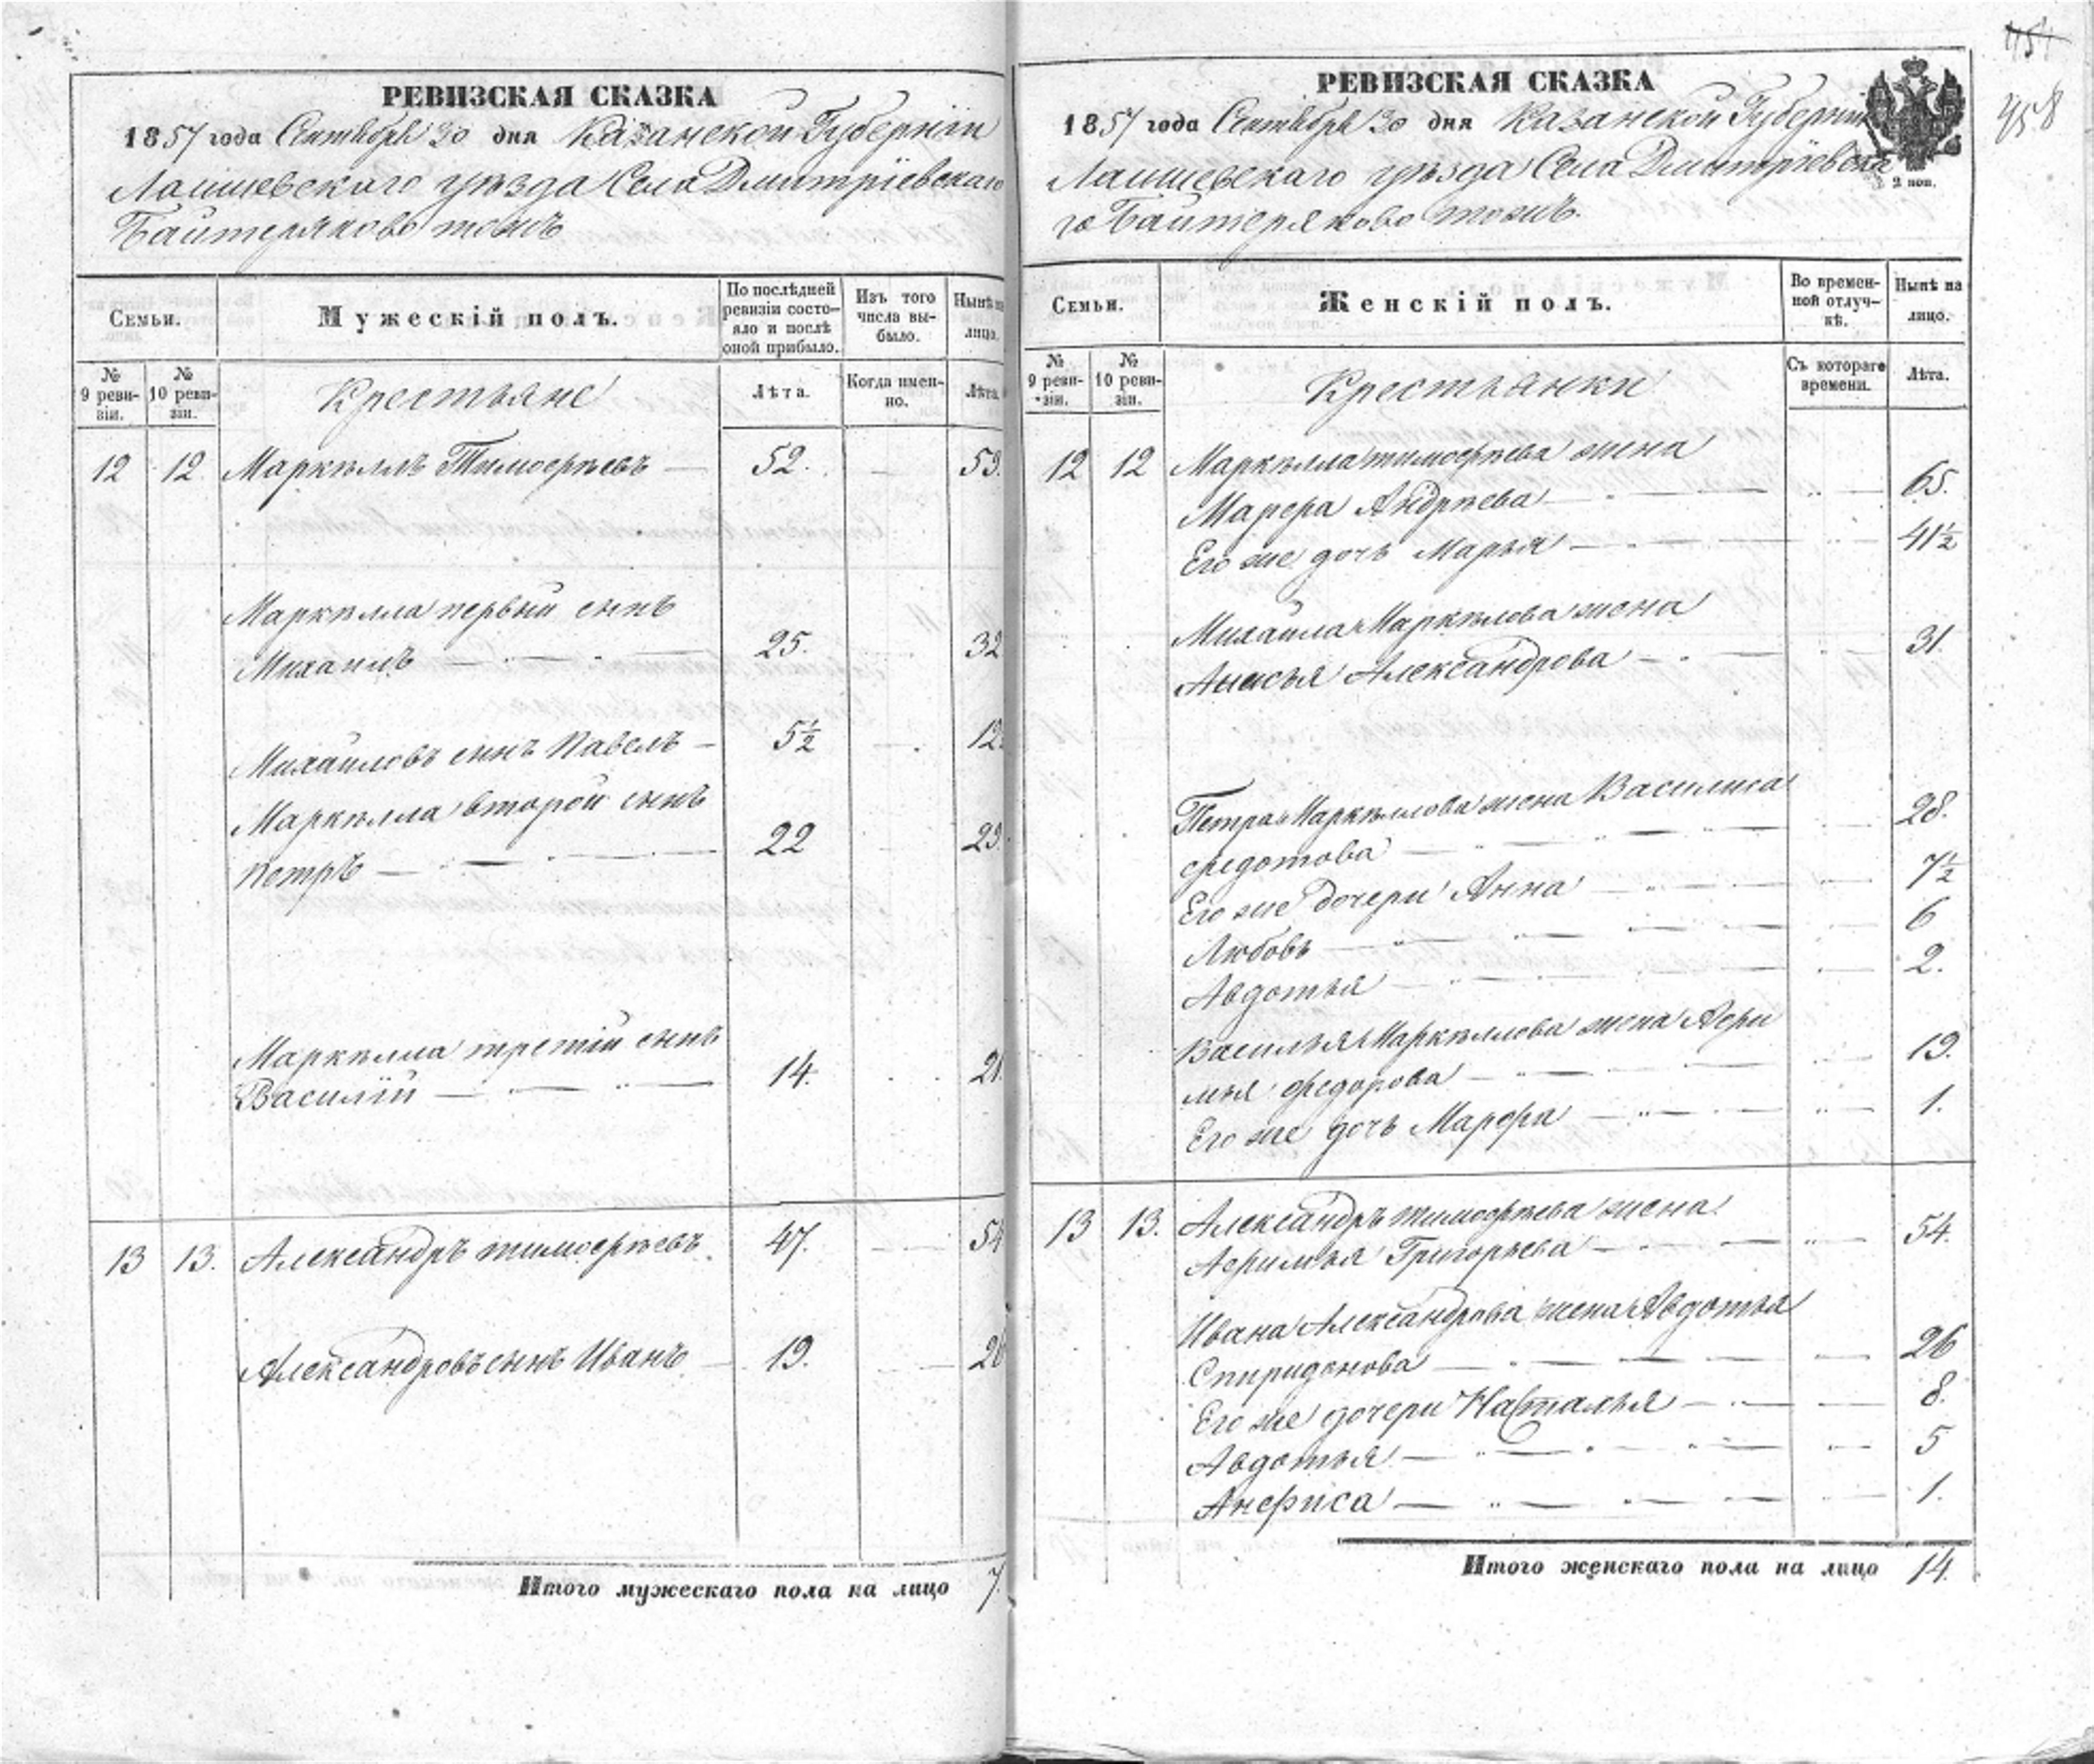 РЕВИЗСКАЯ СКАЗКА
1857 года Сентября 30 дня Казанской Губернiи
Лаишевскаго уѣзда Села Дмитрiевскаго
Байтеряково тожъ
Семьи.
Мужескiй полъ.
По послѣдней ревизiи состояло и послѣ оной прибыло.
Изъ того числа выбыло.
Нынѣ на лицо.
№ 9 ревизiи.
№ 10 ревизiи.
Крестьяне
Лѣта.
Когда именно.
Лѣта.
12 12. Маркѣллъ Тимофѣевъ — 52. — 59.
Маркѣлла первый сынъ
Михаилъ — 25. 32
Михайловъ сынъ Павелъ — 5½ 12.
Маркѣлла второй сынъ
Петръ — 22 29.
Маркѣлла третiй сынъ
Василiй — 14. 21.
13 13. Александръ тимофѣевъ. 47. 54
Александровъ сынъ Иванъ 19. 26
Итого мужескаго пола на лицо 7.
454
458
РЕВИЗСКАЯ СКАЗКА
1857 года Сентября 30 дня Казанской Губернiи
Лаишевскаго уѣзда Села Дмитрiевска
го Байтеряково тожъ.
2 коп.
Семьи.
Женскiй полъ.
Во временной отлучкѣ.
Нынѣ на лицо.
№ 9 ревизiи.
№ 10 ревизiи.
Крестьянки
Съ котораго времени.
Лѣта.
12 12 Маркѣлла тимофѣева жена
Марфа Андрѣева — 65.
Его же дочь Марья — 41½
Михайла Маркѣлова жена
Анисья Александрова — 31.
Петра Маркѣллова жена Василиса
федотова — 28.
Его же дочери Анна — 7½
Любовь — 6
Авдотья — 2.
Василья Маркѣллова жена Афи
мья федорова — 19.
Его же дочь Марфа — 1.
13 13. Александръ тимофѣева жена
Афимья Григорьева — 54.
Ивана Александрова жена Авдотья
Спиридонова — 26
Его же дочери Наталья — 8.
Авдотья — 5
Анфиса — 1.
Итого женскаго пола на лицо 14.